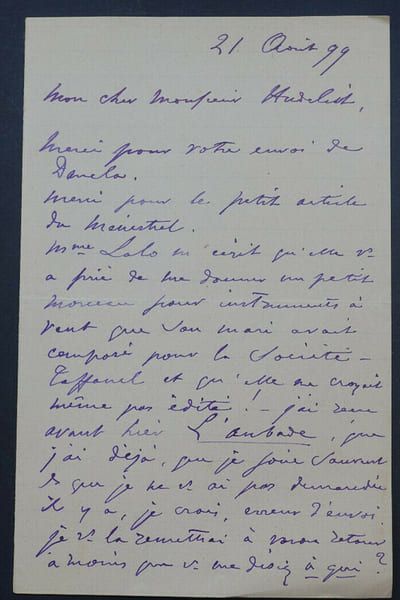 21 Août 99
Mon cher Monsieur
Merci pour votre envoi de
merci pour le petit article
du Ménestrel.
Mme Lalo m'écrit qu'elle vs
a prié de me donner un petit
morceau pour instruments à
vent que son mari avait
composé pour la Société
Taffanel et qu'elle ne croyait
même pas édité ! – j'ai reçu
avant hier L'aubade, que
j'ai déjà, que je joue souvent
& que je ne vs ai pas demandée
il y a, je crois, erreur d'envoi.
je vs la remettrai à votre retour
à moins que vs me disiez à qui ?